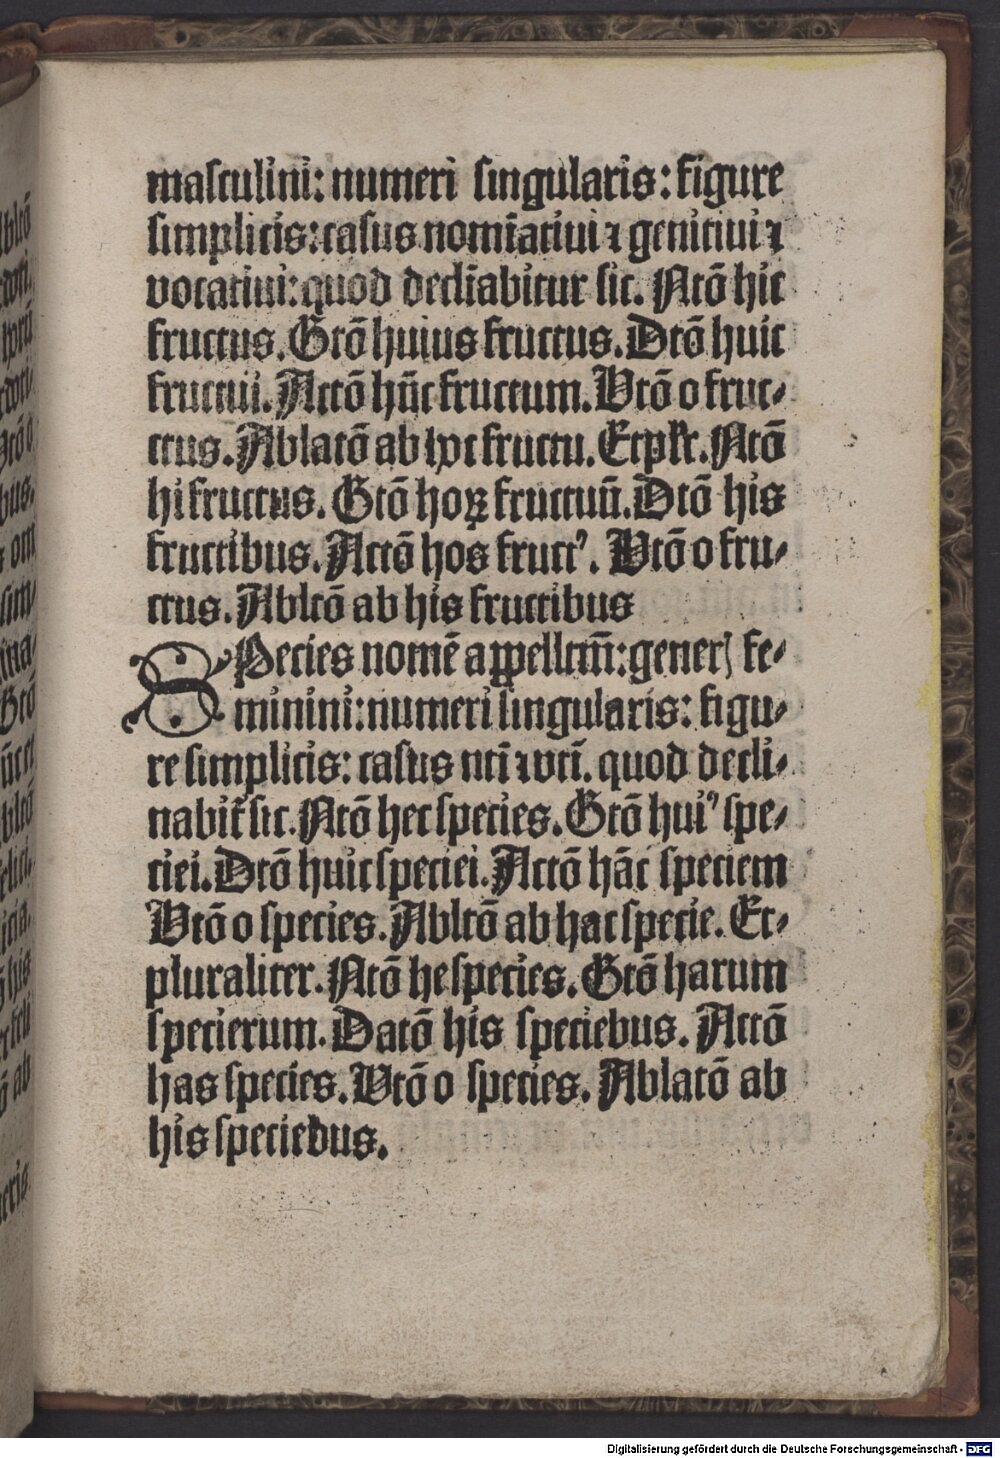 maſculini: numeri ſingularis: figure
ſimplicis: caſus nomīatiui ⁊ genitiui ⁊
vocatiui: quod declīabitur ſic. Ntō hic
fructus. Gtō huius fructus. Dtō huic
fructui. Actō hūc fructum. Vtō o fruc⸗
ctus. Ablatō ab hoc fructu. Et plr. Ntō
hi fructus. Gtō hoꝝ fructuū. Dtō his
fructibus. Actō hos fruct⁹. Vtō o fru⸗
ctus. Abltō ab his fructibus
SPecies nomē appelltm̄: generꝭ fe⸗
minini: numeri ſingularis: figu⸗
re ſimplicis: caſus nti̅ ⁊ vti̅. quod decli⸗
nabit᷑ ſic. Ntō hec ſpecies. Gtō hui⁹ ſpe⸗
ciei. Dtō huic ſpeciei. Actō hāc ſpeciem
Vtō o ſpecies. Abltō ab hac ſpecie. Et⸗
pluraliter. Ntō he ſpecies. Gtō harum
ſpecierum. Datō his ſpeciebus. Actō
has ſpecies. Vtō o ſpecies. Ablatō ab
his ſpeciebus.
Digitalisierung gefördert durch die Deutsche Forschungsgemeinschaft - DFG